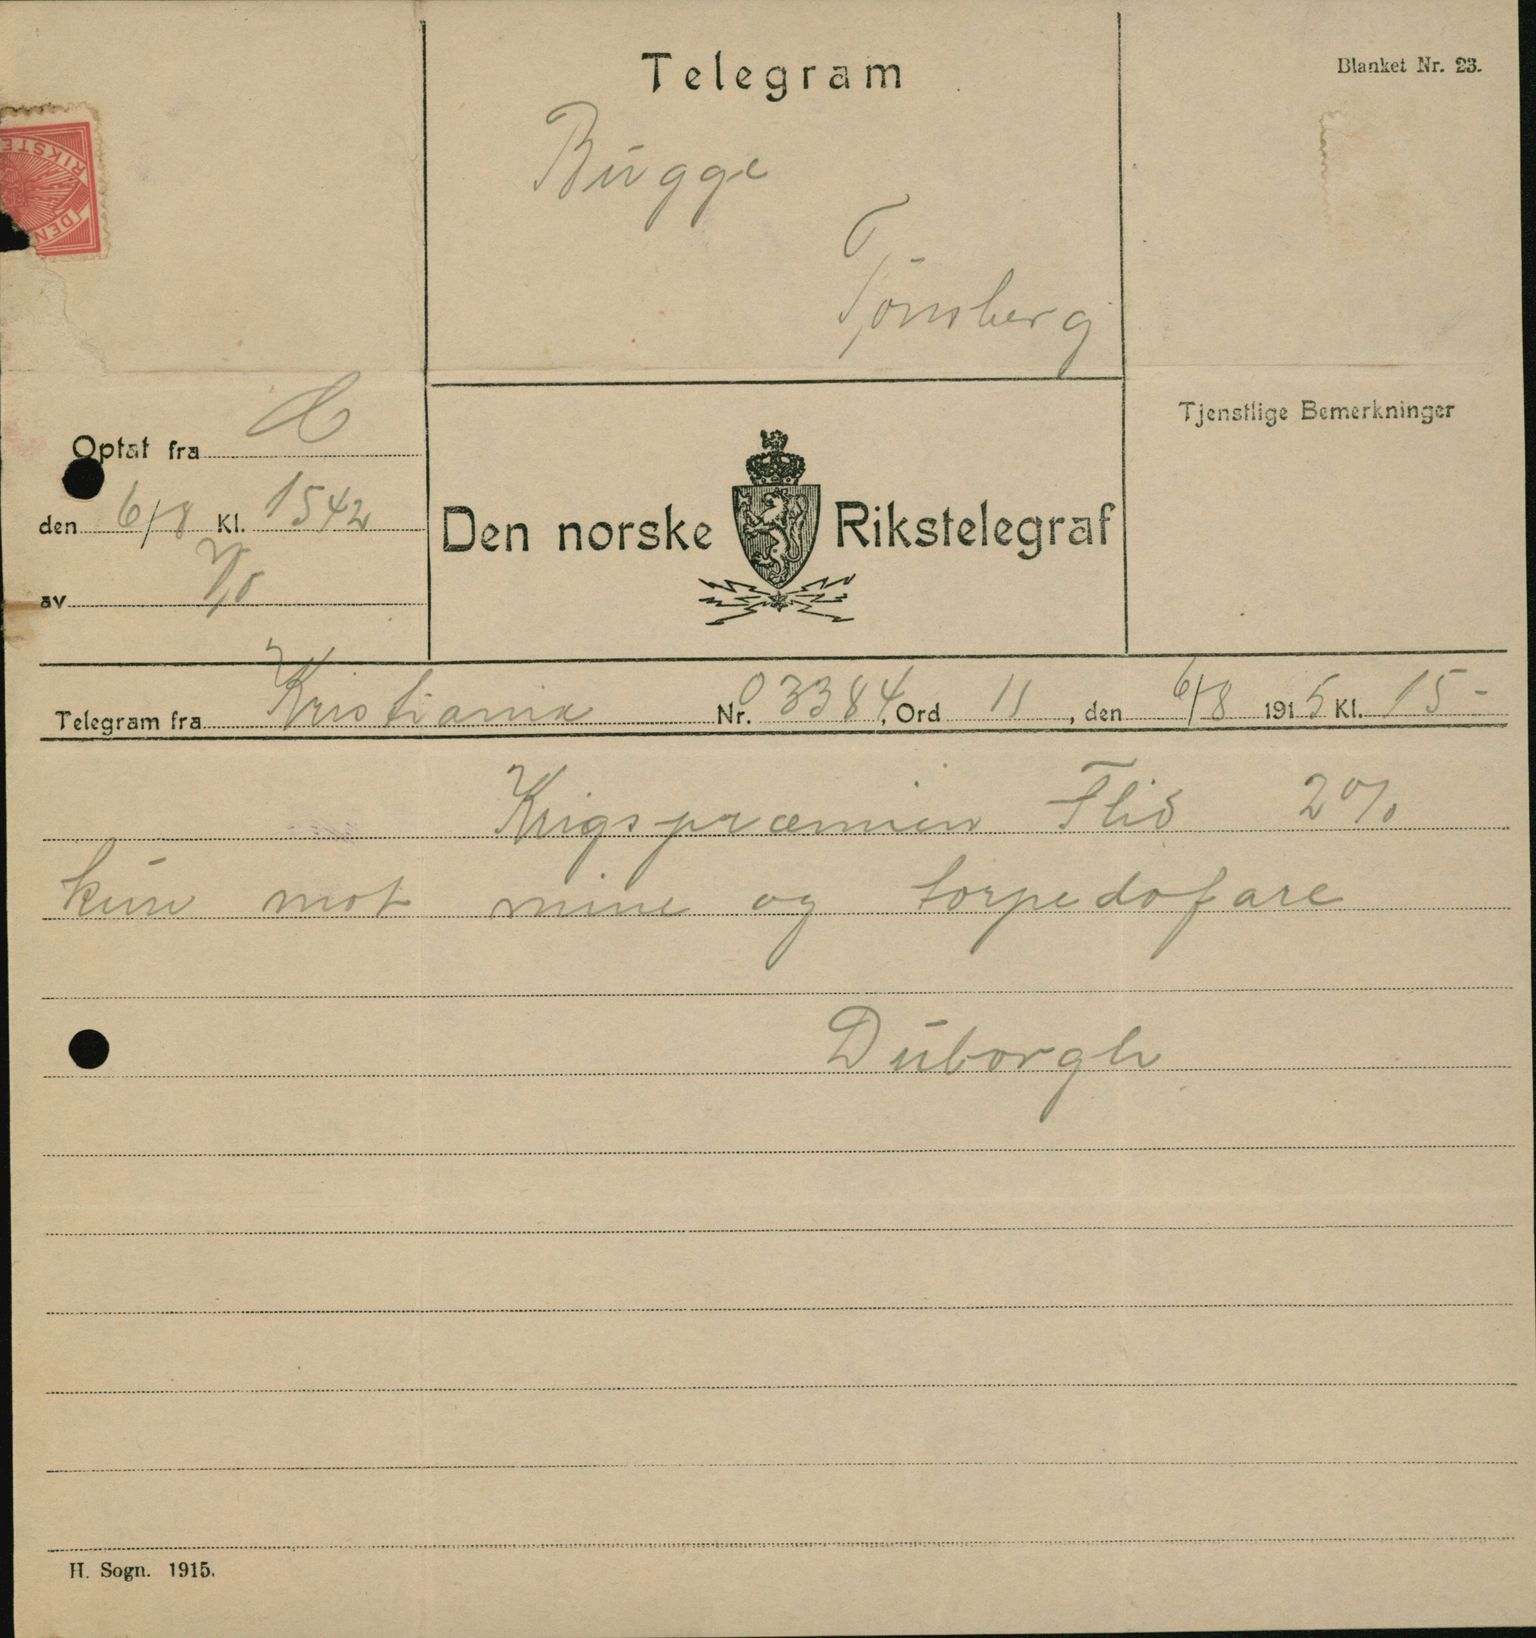 Telegram
Blanket Nr. 23.
Bugge
Tønsberg
DEN RIKSTE
Optat fra
den 6/8 Kl. 1542
av
Den norske Rikstelegraf
Tjenstlige Bemerkninger
Telegram fra Kristiania Nr. 03384, Ord 11, den 6/8 1915 Kl. 15-
Krigspræmien Flid 2%
kun mot mine og torpedofare
Duborgh
H. Sogn. 1915.